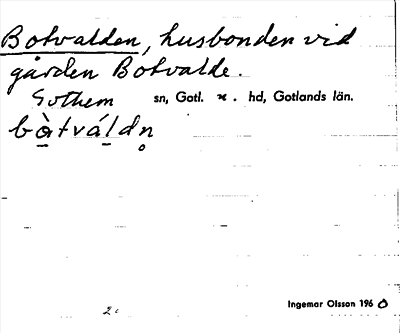 Botvalden, husbonden vid
gården Botvalde.
Gothem sn, Gotl. n. hd, Gotlands län.
bàtváldn̥
Ingemar Olsson 1960